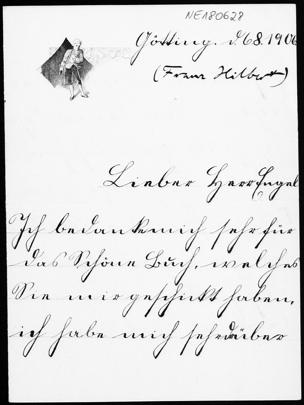 NE180628
Götting. d. 6.8.1906
(Franz Hilbert)
Lieber Herr Engel
Ich bedanke mich sehr für
das Schöne Buch, welches
Sie mir geschickt haben,
ich habe mich sehr darüber